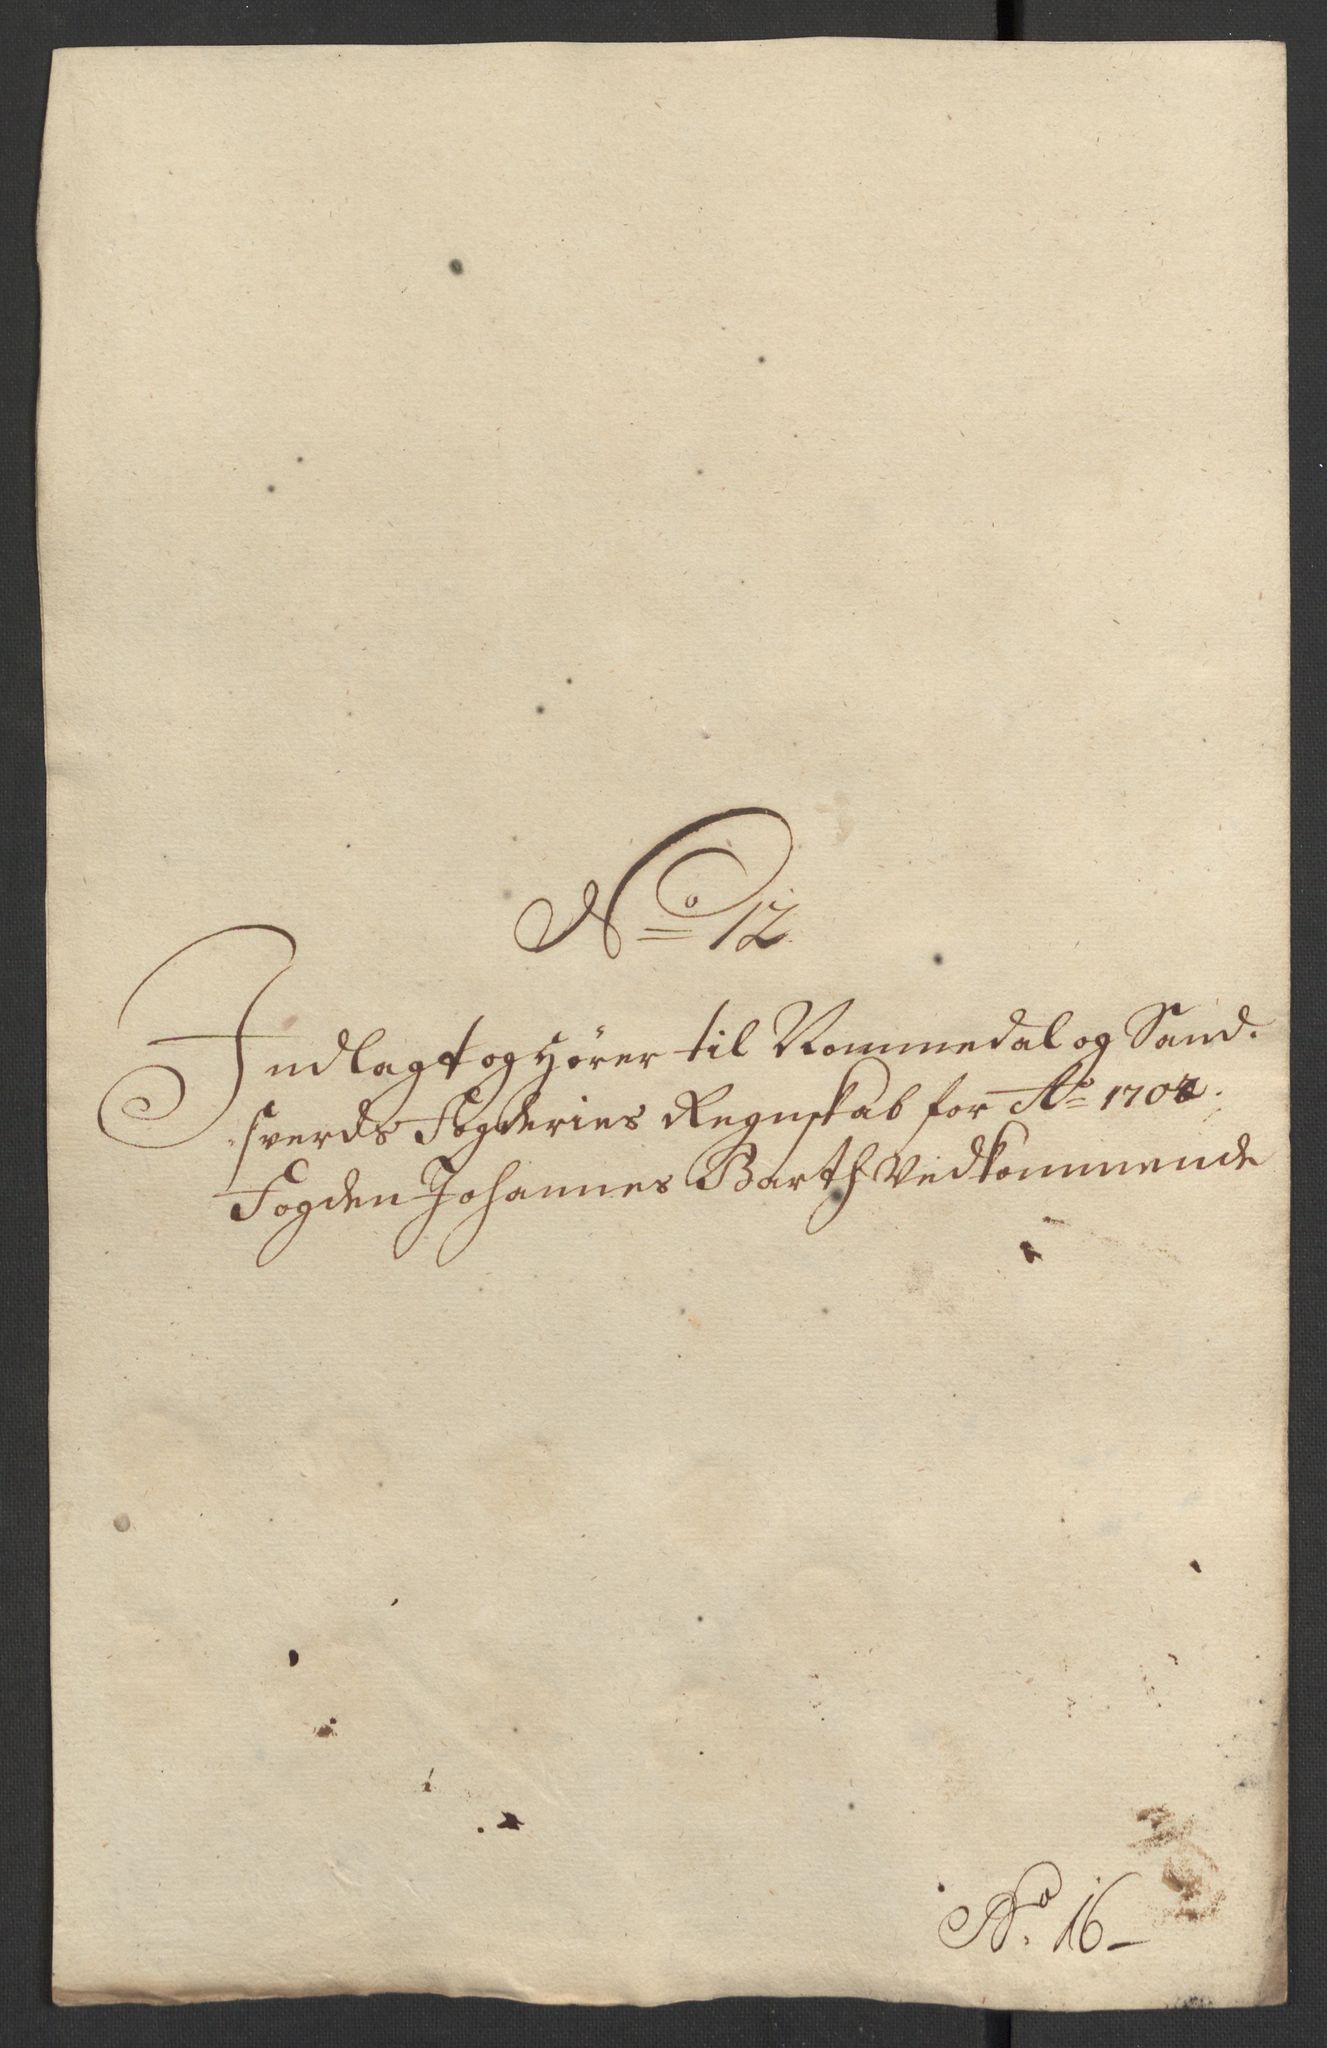 No 12
Indlagt og hører til Nommedal og Sand-
sverds Fogderies Regnskab for Ao
Fogden Johannes Barth Vedkommende
No. 16-